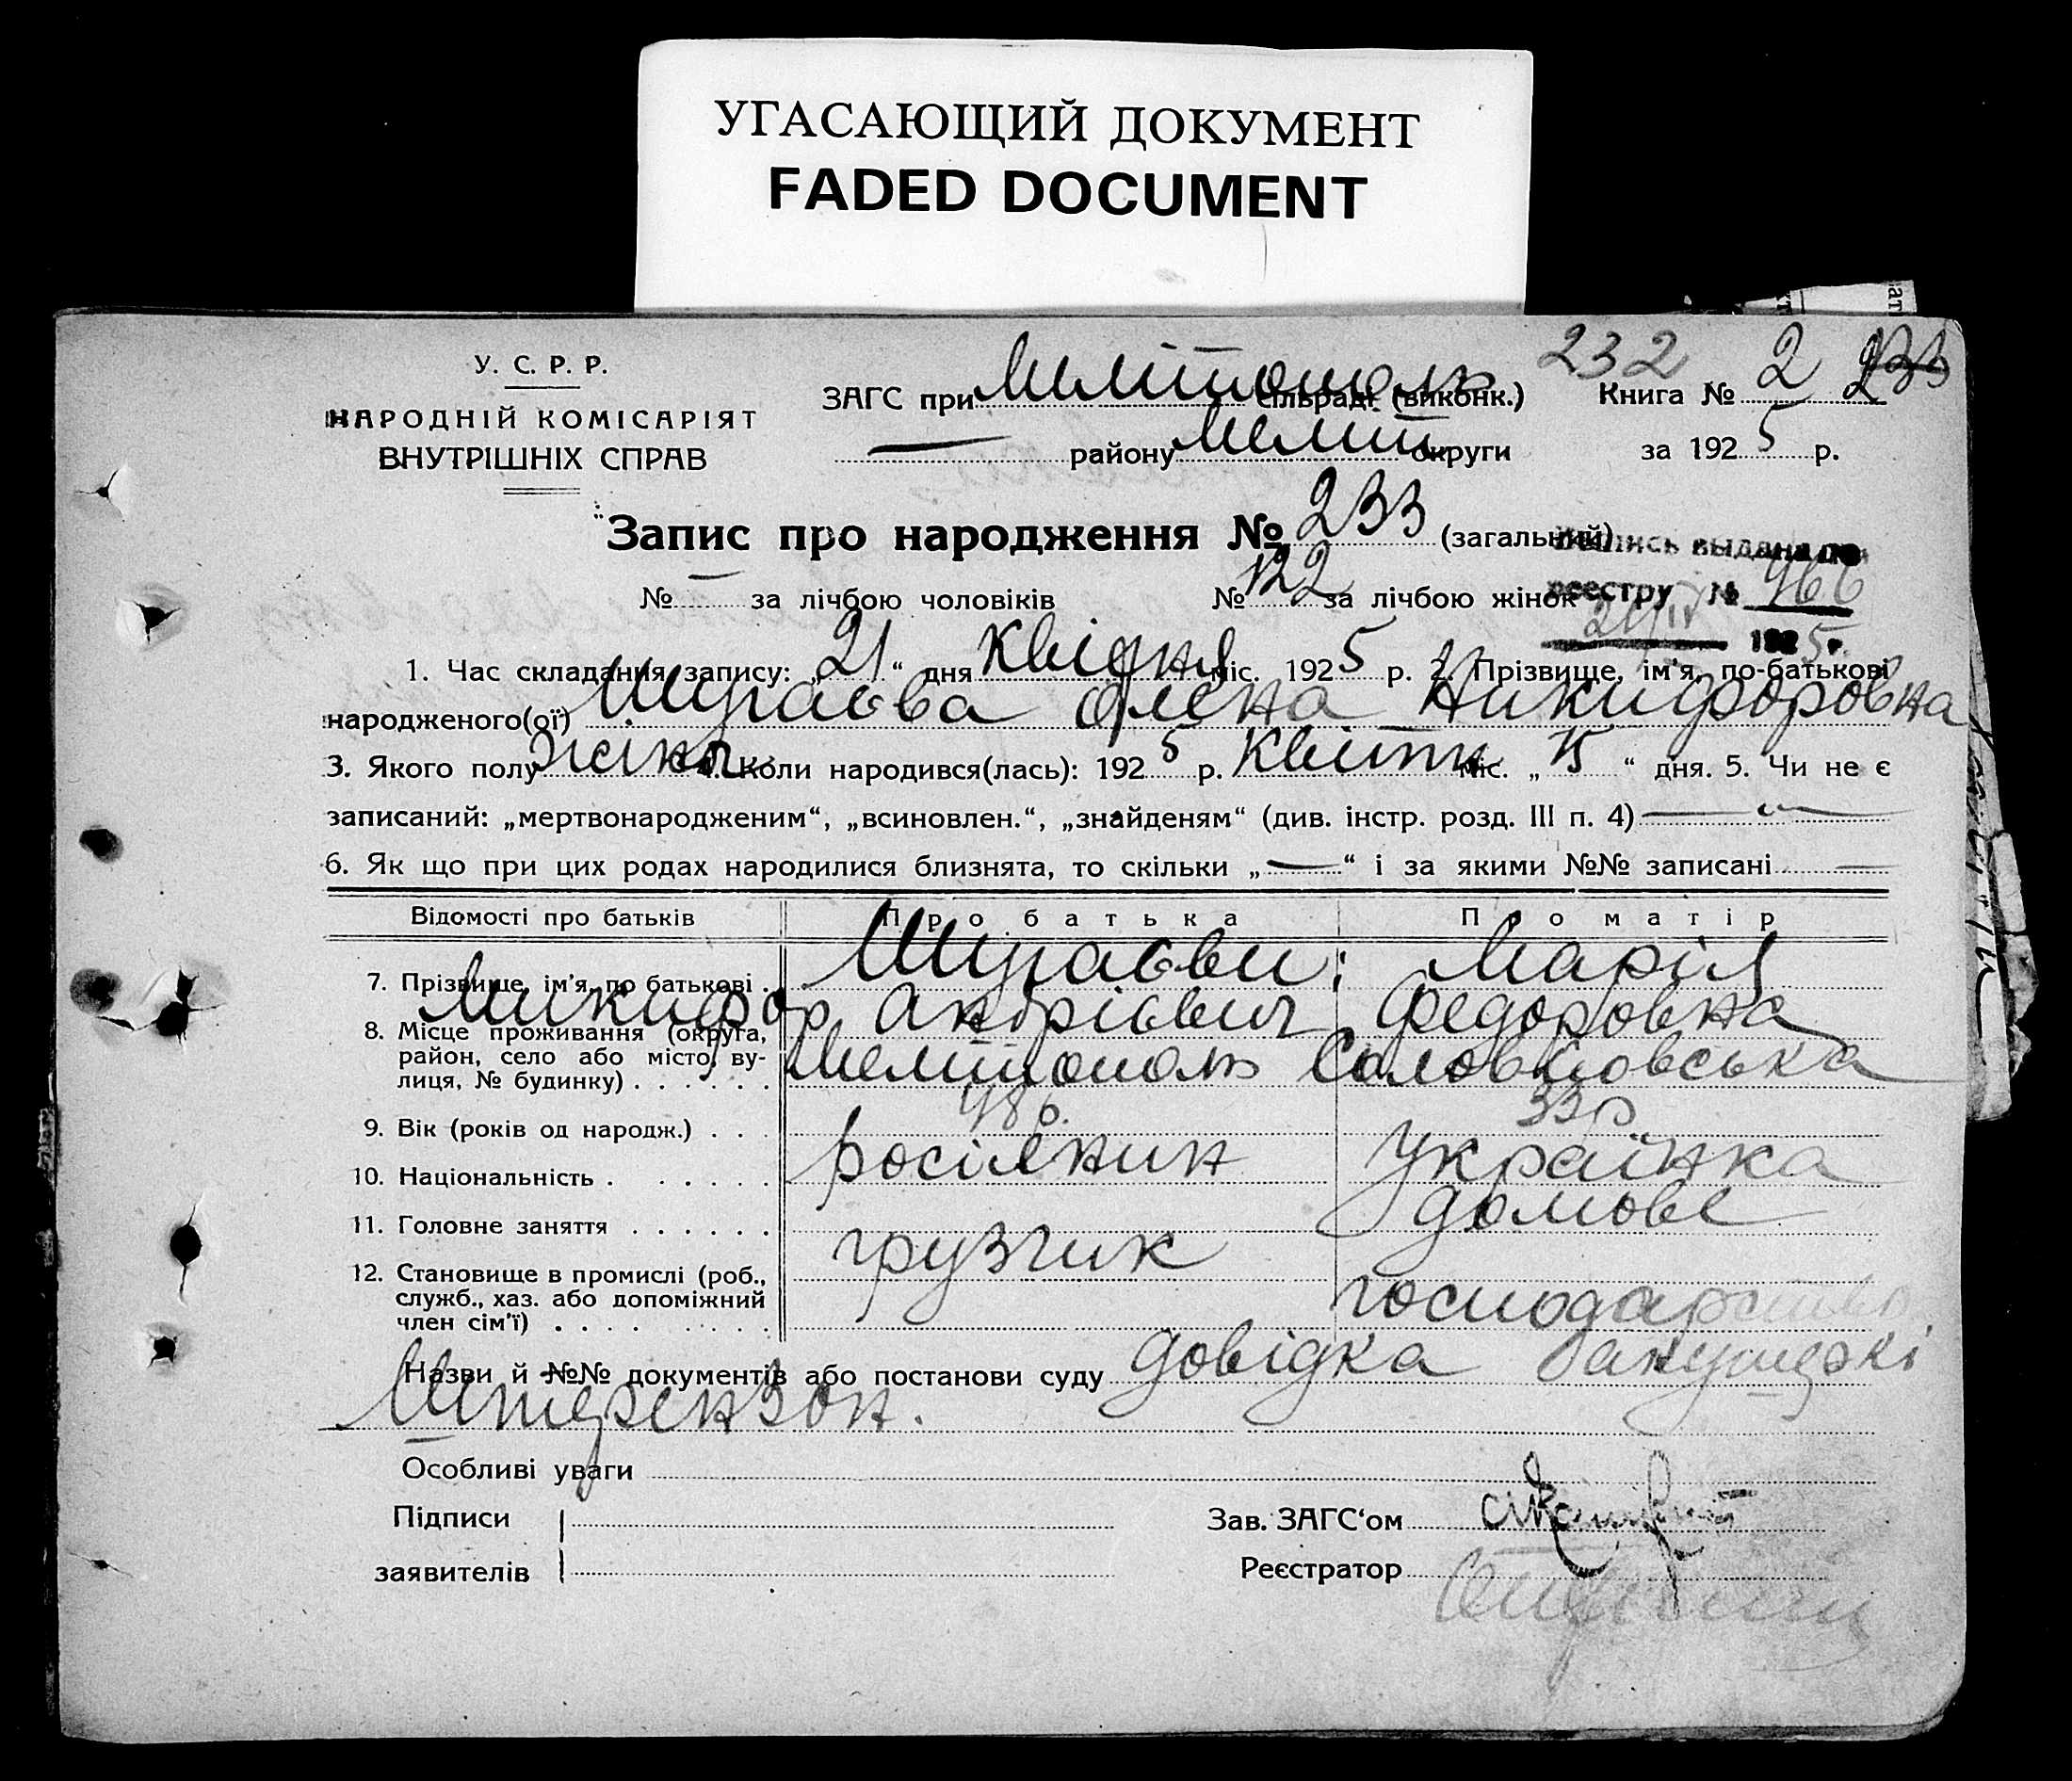 УГАСАЮЩИЙ ДОКУМЕНТ
FADED DOCUMENT
У. С. Р. Р.
НАРОДНІЙ КОМІСАРІЯТ
ВНУТРІШНІХ СПРАВ
232
ЗАГС при Мелітополь сільраді (виконк.)
Книга № 2 233
— району Меліт округи
за 1925 р.
Запис про народження № 233 (загальний)
№ — за лічбою чоловіків № 122 за лічбою жінок
Выпись выдана по
реестру № 966
1925 г.
1. Час складання запису: „21“ дня Квідня міс. 1925 р. 2. Прізвище, ім'я, по-батькові
народженого(ої) Шураєва Олена Никифоровна
3. Якого полу жіноч 4. Коли народився(лась): 1925 р. Квітн міс. „15“ дня. 5. Чи не є
записаний: „мертвонародженим“, „всиновлен.“, „знайденям“ (див. інстр. розд. III п. 4) —
6. Як що при цих родах народилися близнята, то скільки „—“ і за якими №№ записані —
Відомості про батьків Про батька Про матір
7. Прізвище, ім'я, по батькові . Шураєви: Марія
Микифор Андрієвич Федоровна
8. Місце проживання (округа, район, село або місто, вулиця, № будинку) . . . . . . Мелітополь Соловйовська
9. Вік (років од народж.) . . . 48 р. 33 р
10. Національність . . . . . . росіянин Українка
11. Головне заняття . . . . . . грузчик домове
12. Становище в промислі (роб., служб., хаз. або допоміжний член сім'ї) . . . . . . . . господарство
Назви й №№ документів або постанови суду довідка банушеркі
Штерензон.
Особливі уваги
Підписи
заявителів
Зав. ЗАГС'ом
Реєстратор